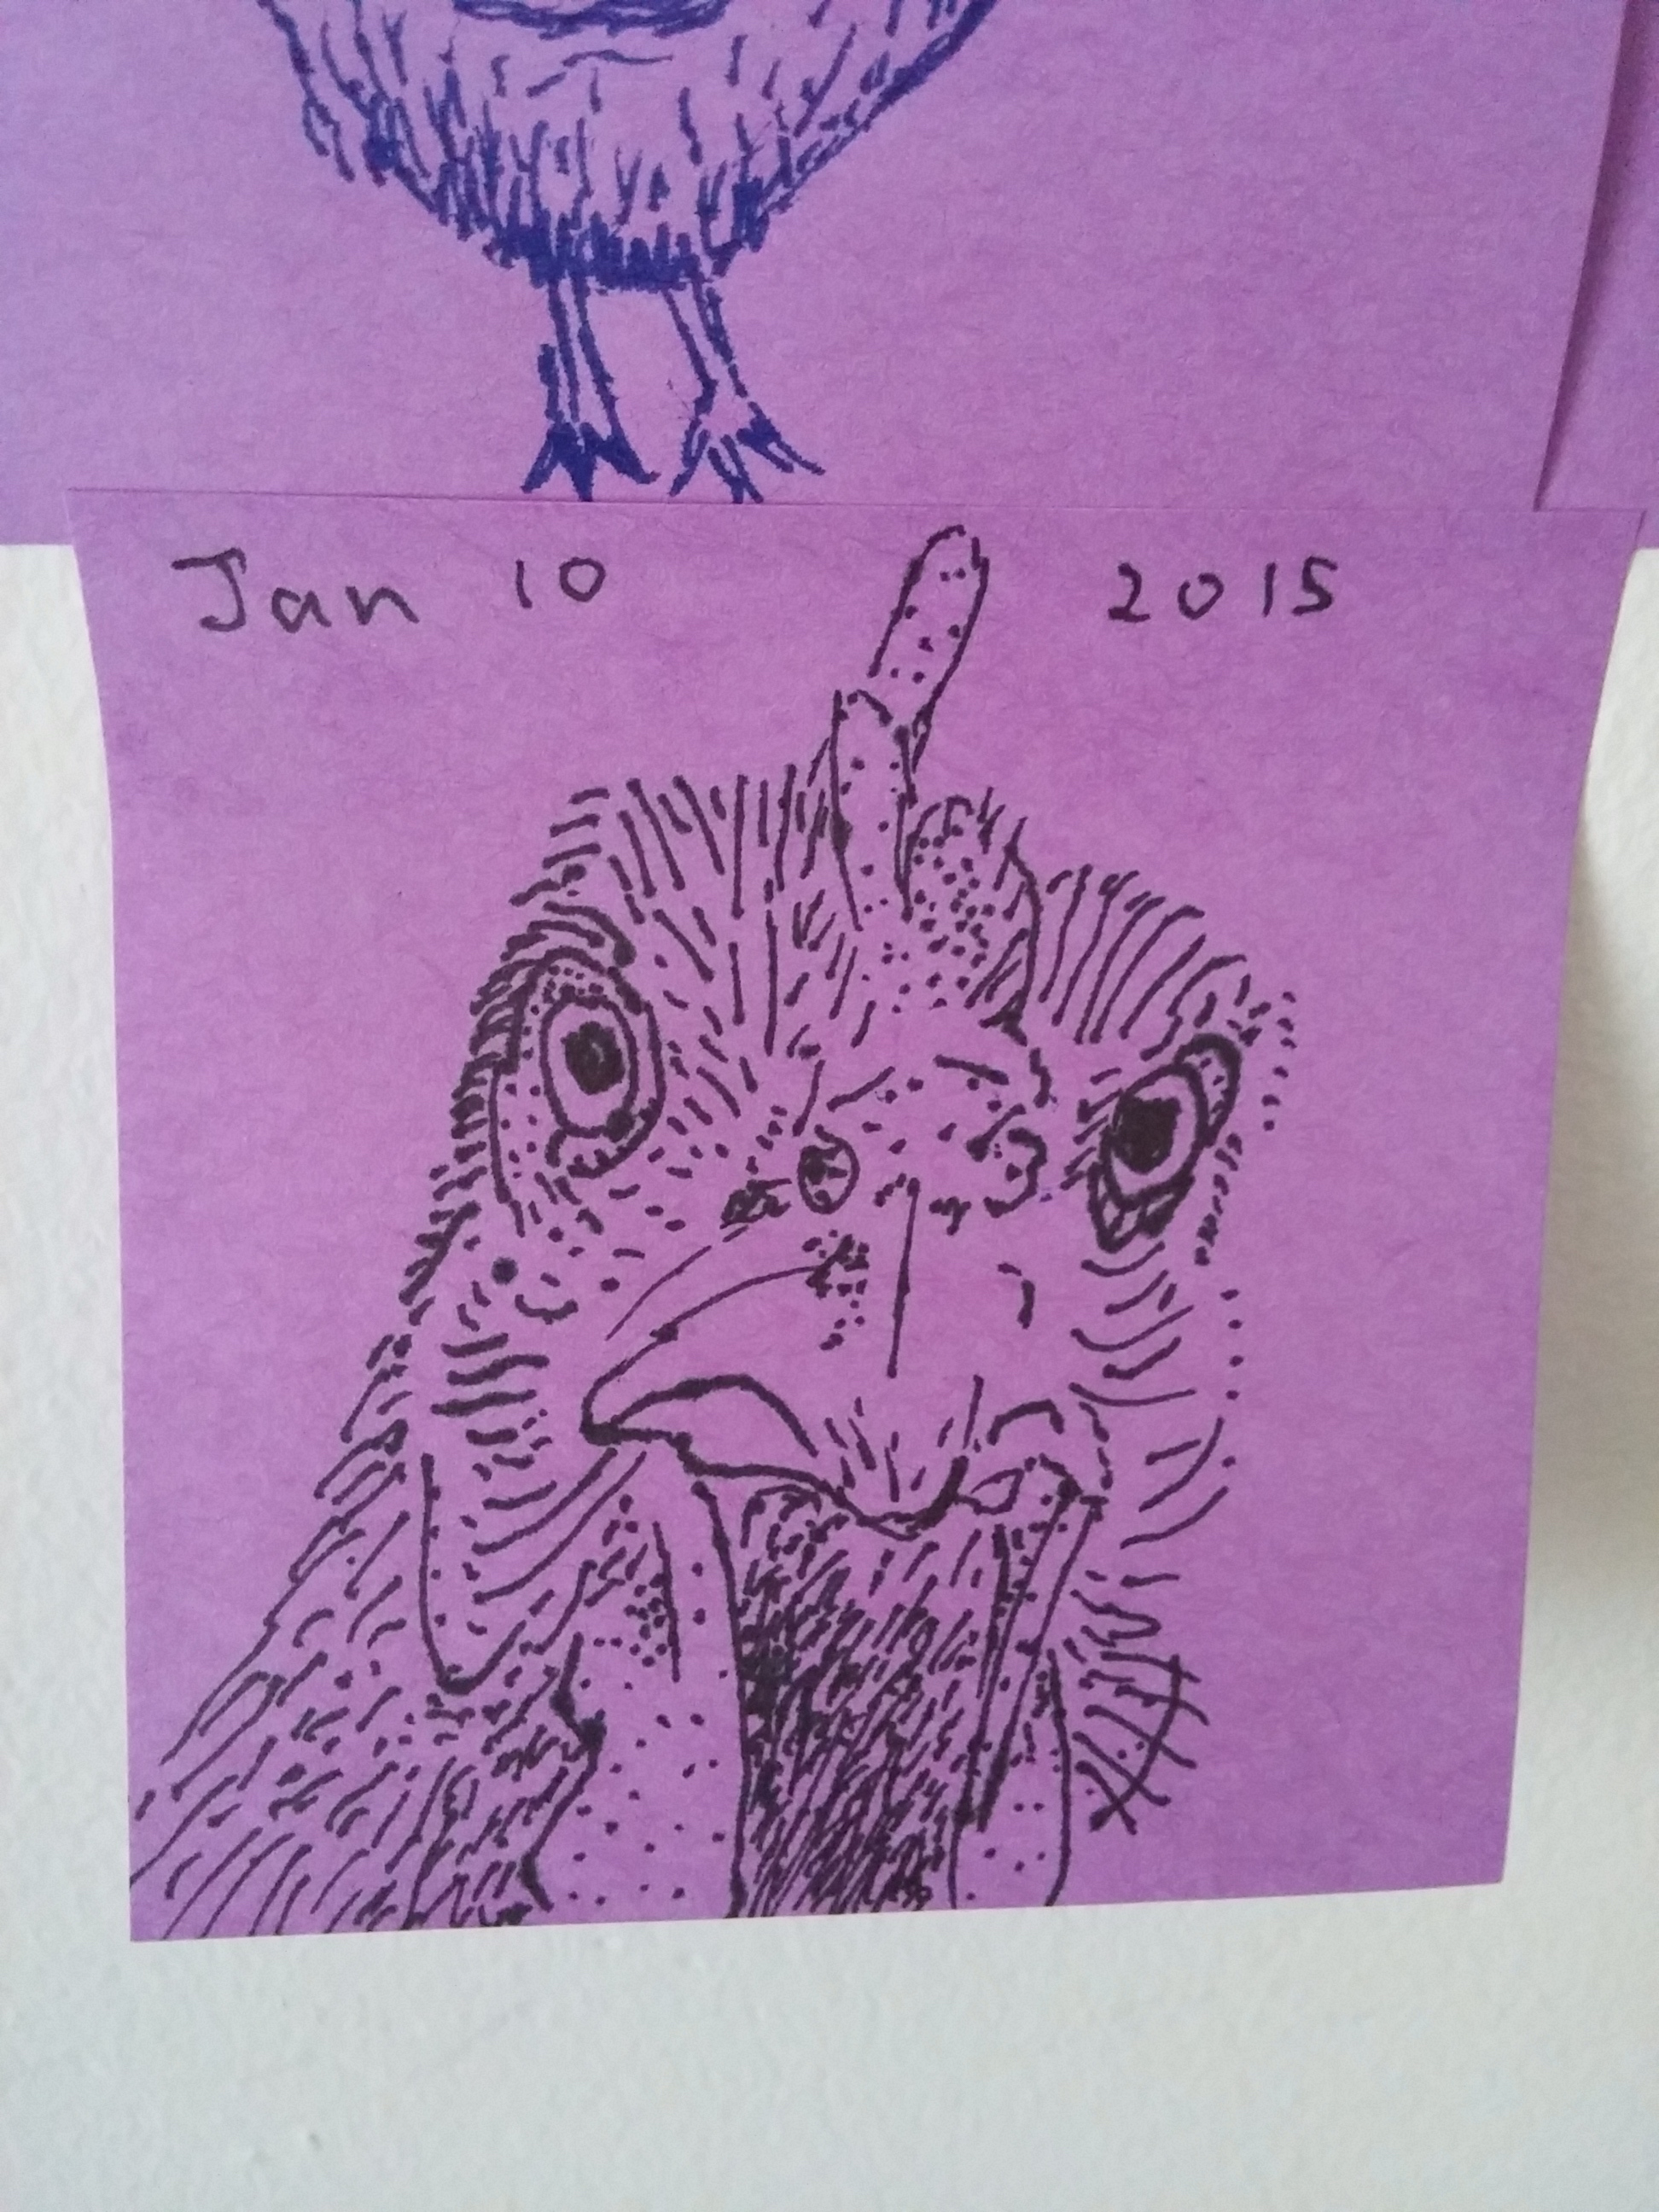 Jan 10 2015